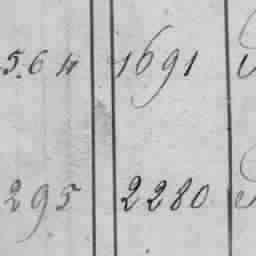 5.64 1691
295 2280